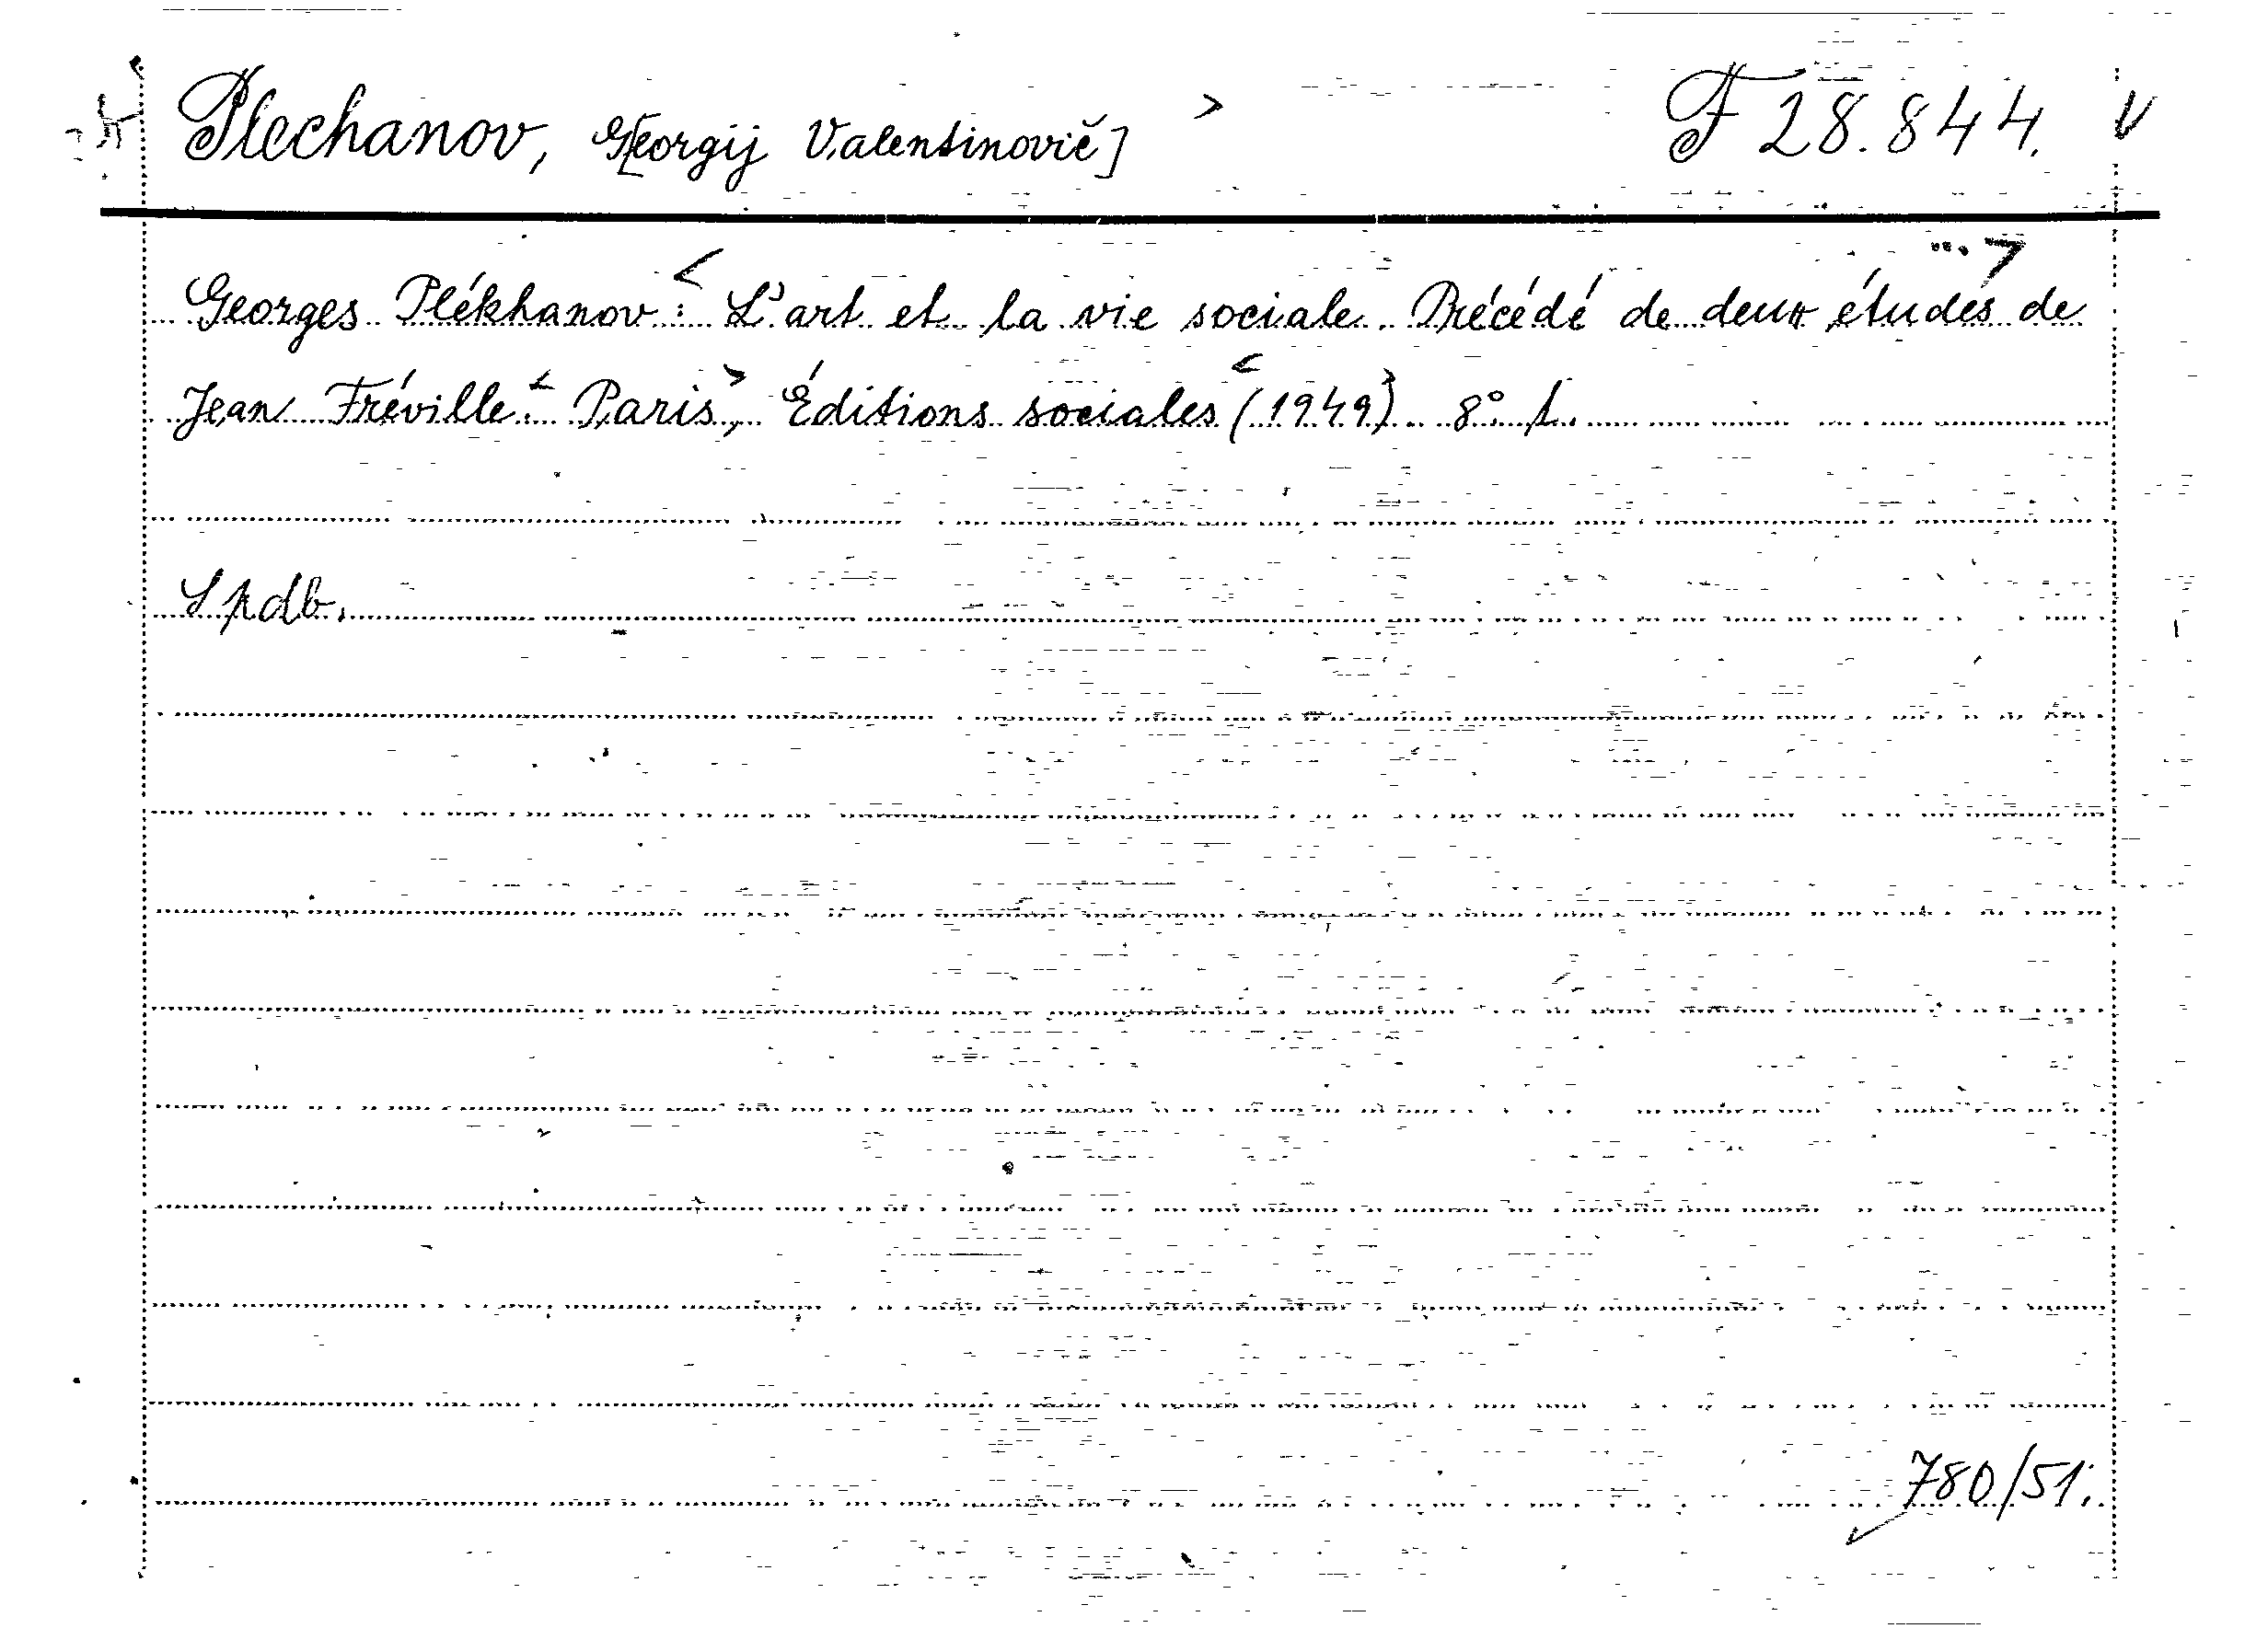 Plechanov, G[eorgij Valentinovič] > F 28.844. V
Georges Plékhanov: L'art et la vie sociale. Précédé de deux études de
Jean Fréville. Paris, Éditions sociales (1949) 8° 1.
Spdb.
780/51.